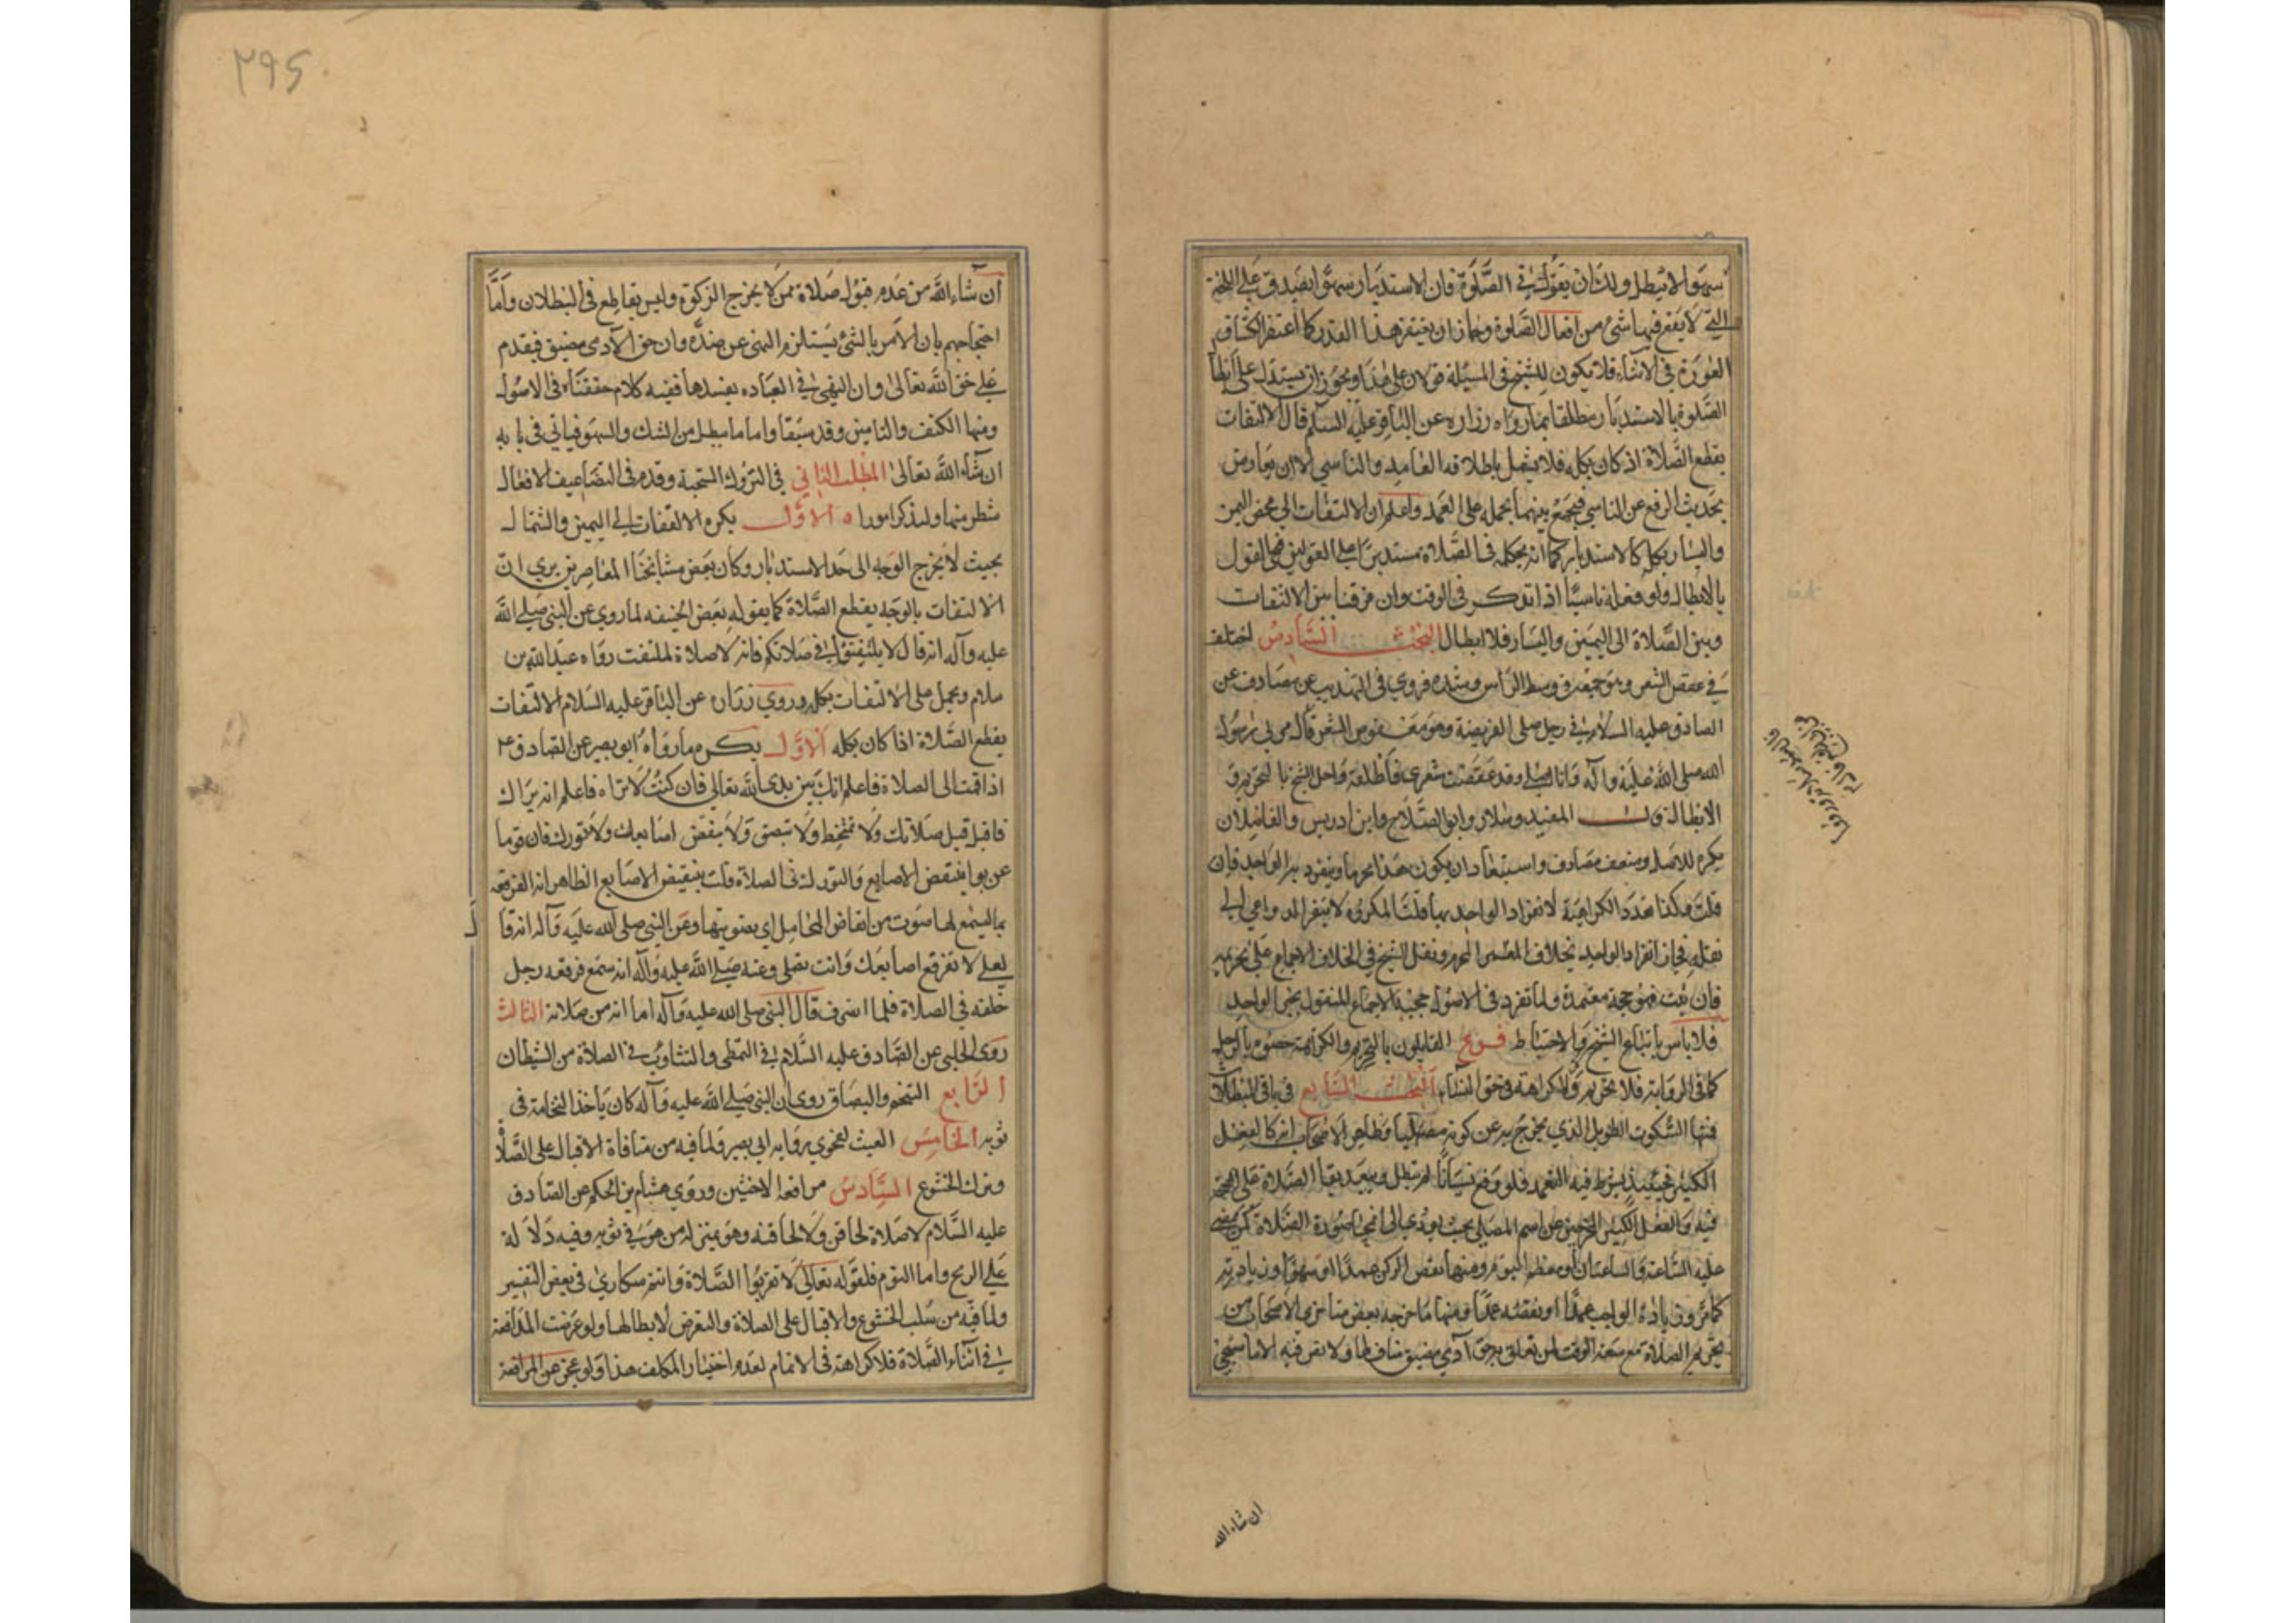 سهوا لا تبطل ولك ان يقول في الصلوة فان الاستدبار سهوا يصدق على اللحظة
التي لا يقع فيها شئ من افعال الصلوة وجاز ان يغتفر هذا القدر كما اغتفر انكشاف
العورة في الاثناء فلا يكون للشيخ في المسئلة قولان على هذا ويجوز ان يستدل على ابطال
الصلوة بالاستدبار مطلقا بما رواه زراره عن الباقر عليه السلم قال الالتفات
يقطع الصلاة اذ كان بكله فلا يشمل باطلاقه العامد والناسي الا ان يعارض
بحديث الرفع عن الناسي فيجمع بينهما بحمله على العمد واعلم ان الالتفات الى محض اليمين
واليسار بكله كالاستدبار كما انه بحكمه في الصلاة مستدبرا على القولين فيجئ القول
بالابطال ولو فعله ناسيا اذا تذكر في الوقت وان فرقنا بين الالتفات
وبين الصلاة الى اليمين واليسار فلا ابطال البحث السادس اختلف
في عقص الشعر وهو جمعه في وسط الراس وشده فروى في التهذيب عن مصادف عن
الصادق عليه السلام في رجل صلى الفريضة وهو معقوص الشعر قال
الله صلى الله عليه وآله وانا اصلي وقد عقصت شعري فاطلقه
الابطال المفيد وسلار وابو الصلاح وابن ادريس والفاضلان
يكره للاصل وضعف مصادف واستبعاد ان يكون هذا محرما وينفرد به الواحد فان
قلت هكذا عدد الكراهية لانفراد الواحد بها قلت المكروه لا تتوفر الدواعي الى
نقله فجاز انفراد الواحد به بخلاف المحرم ونقل الشيخ في الخلاف الاجماع على تحريمه
فان ثبت فهو حجة معتمدة ولما تقرر في الاصول حجية الاجماع المنقول بخبر الواحد
فلا باس باتباع الشيخ والاحتياط فرع القايلون بالتحريم والكراهة خصوه بالرجل
كما في الرواية فلا تحريم ولا كراهة في حق النساء البحث السابع في باقي المبطلات
فمنها السكوت الطويل الذي يخرج به عن كونه مصليا وظاهر الاصحاب انه كالفعل
الكثير فحينئذ يشترط فيه التعمد فلو وقع نسيانا لم تبطل ويبعد بقاء الصلاة على الصحة
فيه وفي الفعل الكثير المخرجين عن اسم المصلي بحيث يؤدي الى انمحاء صورة الصلاة كمن يمضي
عليه الساعة والساعتان او معظم اليوم ومنها نقص الركن عمدا او سهوا وزيادته
كما مر وزيادة الواجب عمدا او نقصه عمدا ومنها ما خرجه بعض متاخري الاصحاب من
تحريم الصلاة مع سعة الوقت لمن تعلق به حق آدمي مضيق مناف لها ولا نص فيه الا ما سيجئ
ان شاء الله
٢٩٥
ان شاء الله من عدم قبول صلاة ممن لا يخرج الزكوة وليس بقاطع في البطلان واما
احتجاجهم بان الامر بالشئ يستلزم النهي عن ضده وان حق الآدمي مضيق فيقدم
على حق الله تعالى وان النهي في العباده يفسدها ففيه كلام حققناه في الاصول
ومنها الكتف والتامين وقد سبقا واما ما يبطل من الشك والسهو فياتي في بابه
ان شاء الله تعالى المطلب الثاني في التروك المستحبة وقد مر في التضاعيف لافعال
شطر منها ولنذكر امورا ه الاول يكره الالتفات الى اليمين والشمال
بحيث لا يخرج الوجه الى حد الاستدبار وكان بعض مشايخنا المعاصرين يرى ان
الالتفات بالوجه يقطع الصلاة كما يقوله بعض الحنيفه لما روي عن النبي صلى الله
عليه وآله انه قال لا يلتفتوا في صلاتكم فانه لا صلاة لملتفت رواه عبد الله بن
سلام ويحمل على الالتفات بكله وروي زراره عن الباقر عليه السلام الالتفات
يقطع الصلاة اذا كان بكله الاول يكره ما رواه ابو بصير عن الصادق ع
اذا قمت الى الصلاة فاعلم انك بين يدي الله تعالى فان كنت لا تراه فاعلم انه يراك
فاقبل قبل صلاتك ولا تمتخط ولا تبصق ولا ينقض اصابعك ولا تورك فان قوما
عذبوا بنقض الاصابع والتورك في الصلاة قلت بنقيض الاصابع الظاهر انه الفرقعة
بها ليسمع لها صوت من انقاض المحامل اي يصوتها وعن النبي صلى الله عليه وآله انه قال
لعلي لا تفرقع اصابعك وانت تصلي وعنه صلى الله عليه وآله انه سمع فرقعه رجل
خلفه في الصلاة فلما انصرف قال النبي صلى الله عليه وآله اما انه من صلاته الثالث
روى الحلبي عن الصادق عليه السلام في التمطي والتثاوب في الصلاة من الشيطان
الرابع التنخم والبصاق روى ان النبي صلى الله عليه وآله كان ياخذ النخامة في
ثوبه الخامس العبث لفحوى رواية ابي بصير ولما فيه من منافاة الاقبال على الصلاة
وترك الخشوع السادس مرافعة الاخبثين وروى هشام بن الحكم عن الصادق
عليه السلام لا صلاة لحاقن ولا لحاقنه وهو بمنزلة من هو في ثوبه وفيه دلالة
على الريح واما النوم فلقوله تعالى لا تقربوا الصلاة وانتم سكارى في بعض التفسير
ولما فيه من سلب الخشوع والاقبال على الصلاة والتعرض لابطالها ولو عرضت المدافعة
في اثناء الصلاة فلا كراهة في الاتمام لعدم اختيار المكلف هذا ولو عجز عن المرافعة